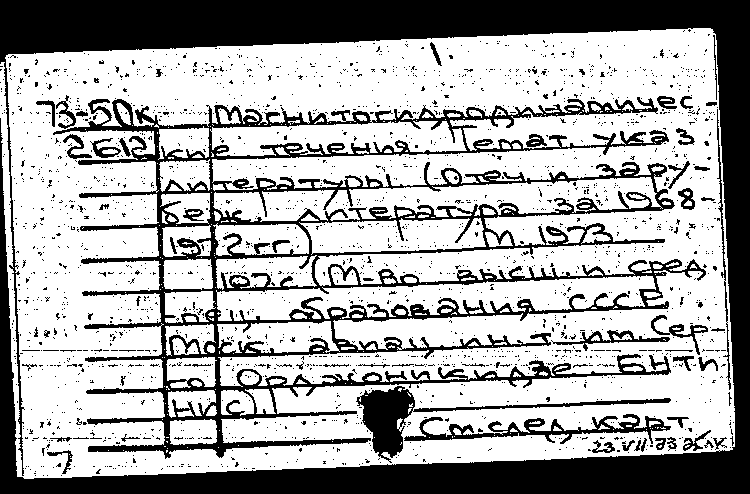 1.
73-50к Магнитогидродинамичес-
2612 кие течения. Темат. указ.
литературы. (Отеч. и зару-
беж. литература за 1968-
1972 гг.) М., 1973.
107 с (М-во высш. и сред.
спец. образования СССР.
Моск. авиац. ин-т им. Сер-
го Орджоникидзе. БНТИ
НИС).
См. след. карт.
23.VII.73